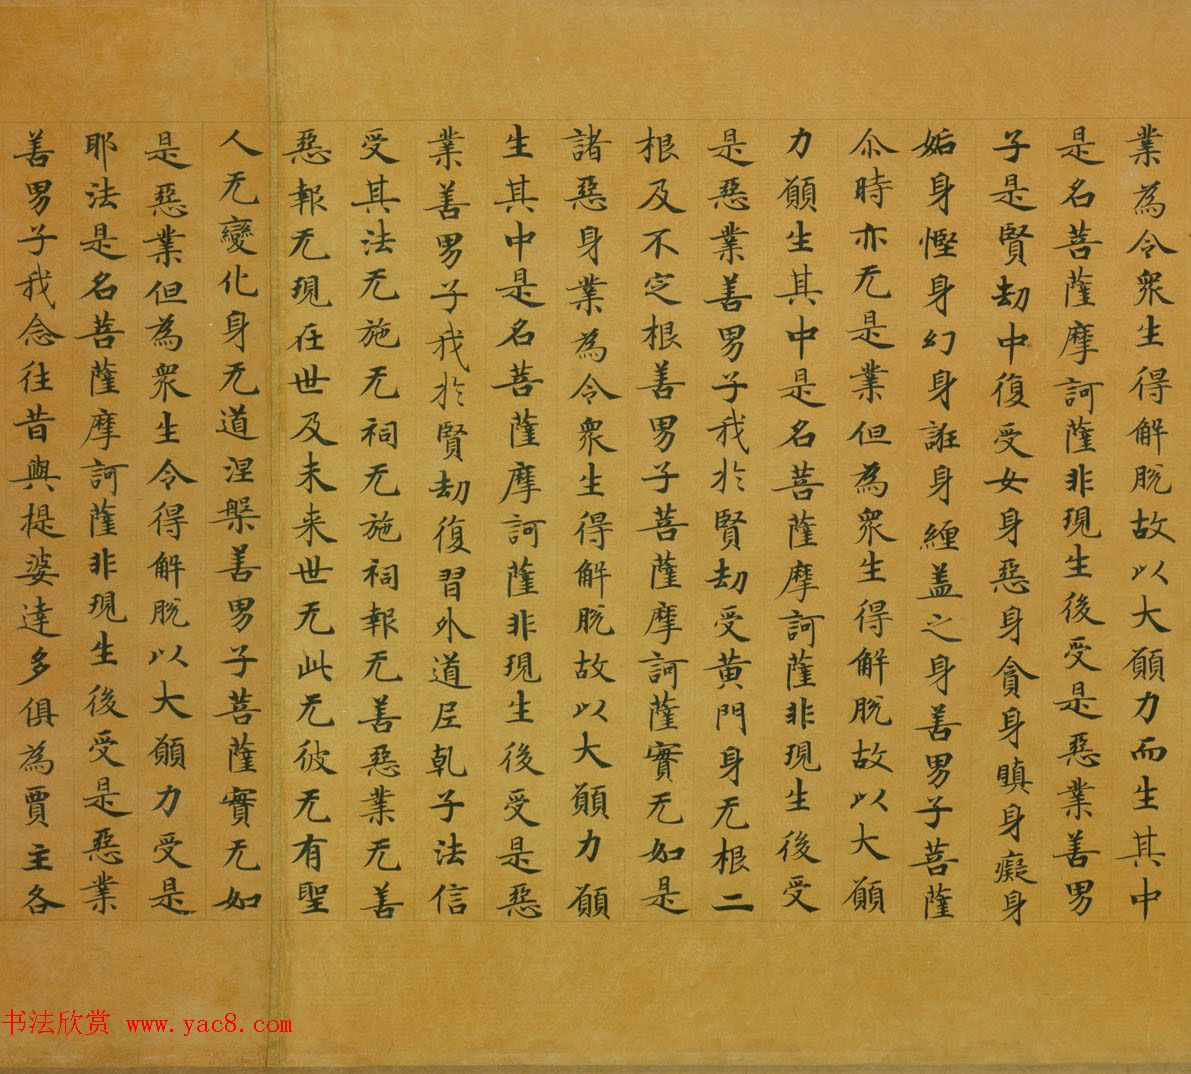 業為令衆生得解脫故以大願力而生其中
是名菩薩摩訶薩非現生後受是惡業善男
子是賢劫中復受女身惡身貪身瞋身癡身
妬身慳身幻身誑身纏盖之身善男子菩薩
尒時亦无是業但為衆生得解脫故以大願
力願生其中是名菩薩摩訶薩非現生後受
是惡業善男子我於賢劫受黄門身无根二
根及不定根善男子菩薩摩訶薩實无如是
諸惡身業為令衆生得解脫故以大願力願
生其中是名菩薩摩訶薩非現生後受是惡
業善男子我於賢劫復習外道尼乹子法信
受其法无施无祠无施祠報无善惡業无善
惡報无現在世及未来世无此无彼无有聖
人无變化身无道涅槃善男子菩薩實无如
是惡業但為衆生令得解脫以大願力受是
耶法是名菩薩摩訶薩非現生後受是惡業
善男子我念往昔與提婆達多俱為賈主各
书法欣赏 www.yac8.com